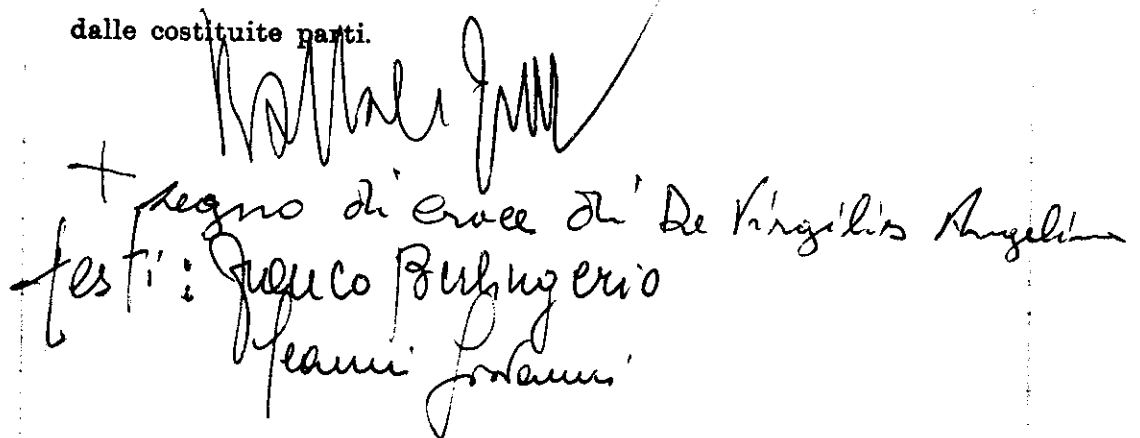 dalle costituite parti.
+ segno di croce di De Virgilis Angelina
testi: Franco Berlingerio
Giovanni